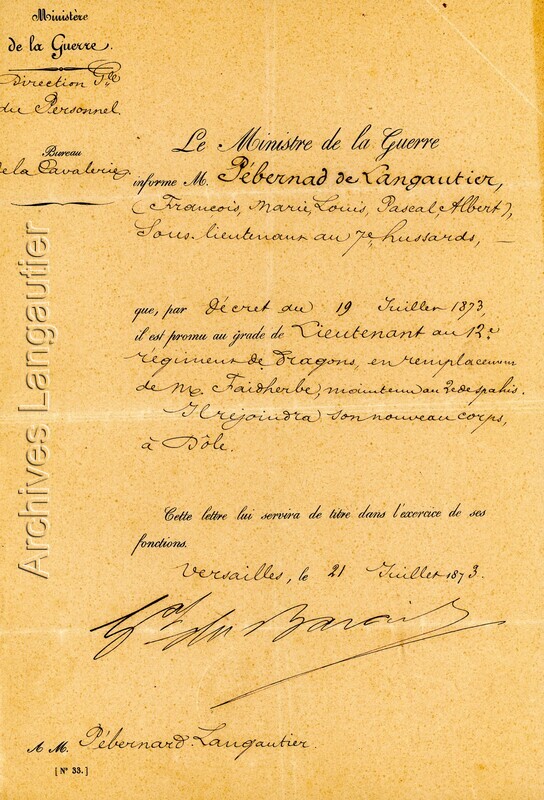 Ministère
de la Guerre.
Direction Gle
du Personnel.
Bureau
de la Cavalerie
Le Ministre de la Guerre
informe M. Pébernad de Langautier,
(François, Marie, Louis, Pascal, Albert),
Sous-lieutenant au 7e hussards,
que, par décret du 19 Juillet 1873,
il est promu au grade de Lieutenant au 12e
régiment de Dragons, en remplacement
de M. Faidherbe, maintenu au 2e de spahis.
Il rejoindra son nouveau corps,
à Dôle.
Cette lettre lui servira de titre dans l'exercice de ses
fonctions.
Versailles, le 21 Juillet 1873.
Gal du Barail
A M. Pébernard-Langautier.
[N° 33.]
Archives Langautier